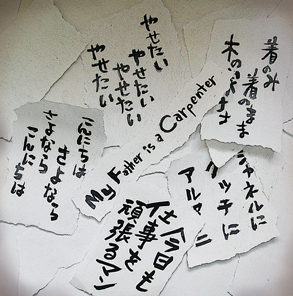 着のみ
着のまま
木の
やせたい
やせたい
やせたい
やせたい
My Father is a Carpenter
こんにちは
さよなら
さよなら
こんにちは
シャネルに
グッチに
アルマーニ
今日も
仕事を
頑張るマン